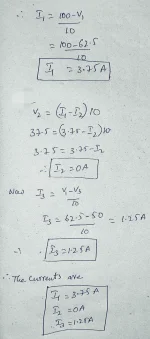 ∴ I₁ = 100-V₁
10
= 100-62.5
10
I₁ = 3.75A
V₂ = (I₁-I₂)10
37.5 = (3.75-I₂)10
3.75 = 3.75-I₂
∴ I₂ = 0A
Now I₃ = V₁-V₃
10
I₃ = 62.5-50 = 1.25A
10
I₃ = 1.25A
∴ The Currents are
I₁ = 3.75A
I₂ = 0A
I₃ = 1.25A